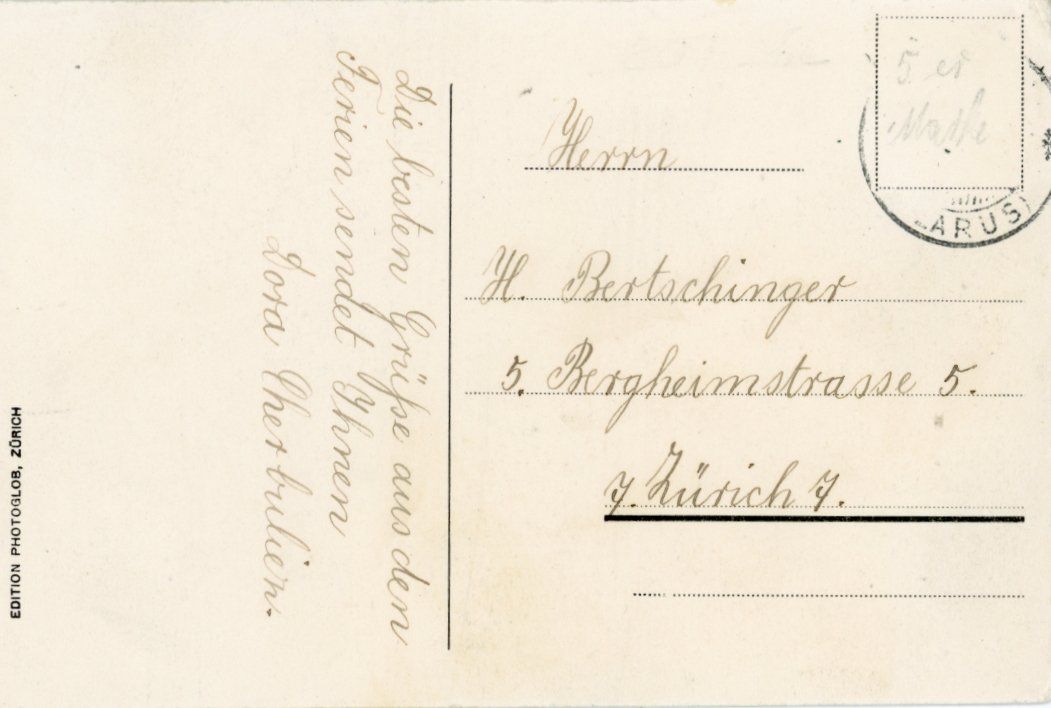 Die besten Grüsse aus den
Ferien sendet Ihnen
Dora Cherbulien.
EDITION PHOTOGLOB, ZÜRICH
5 er
LARUS)
Herrn
H. Bertschinger
5. Bergheimstrasse 5.
7. Zürich 7.